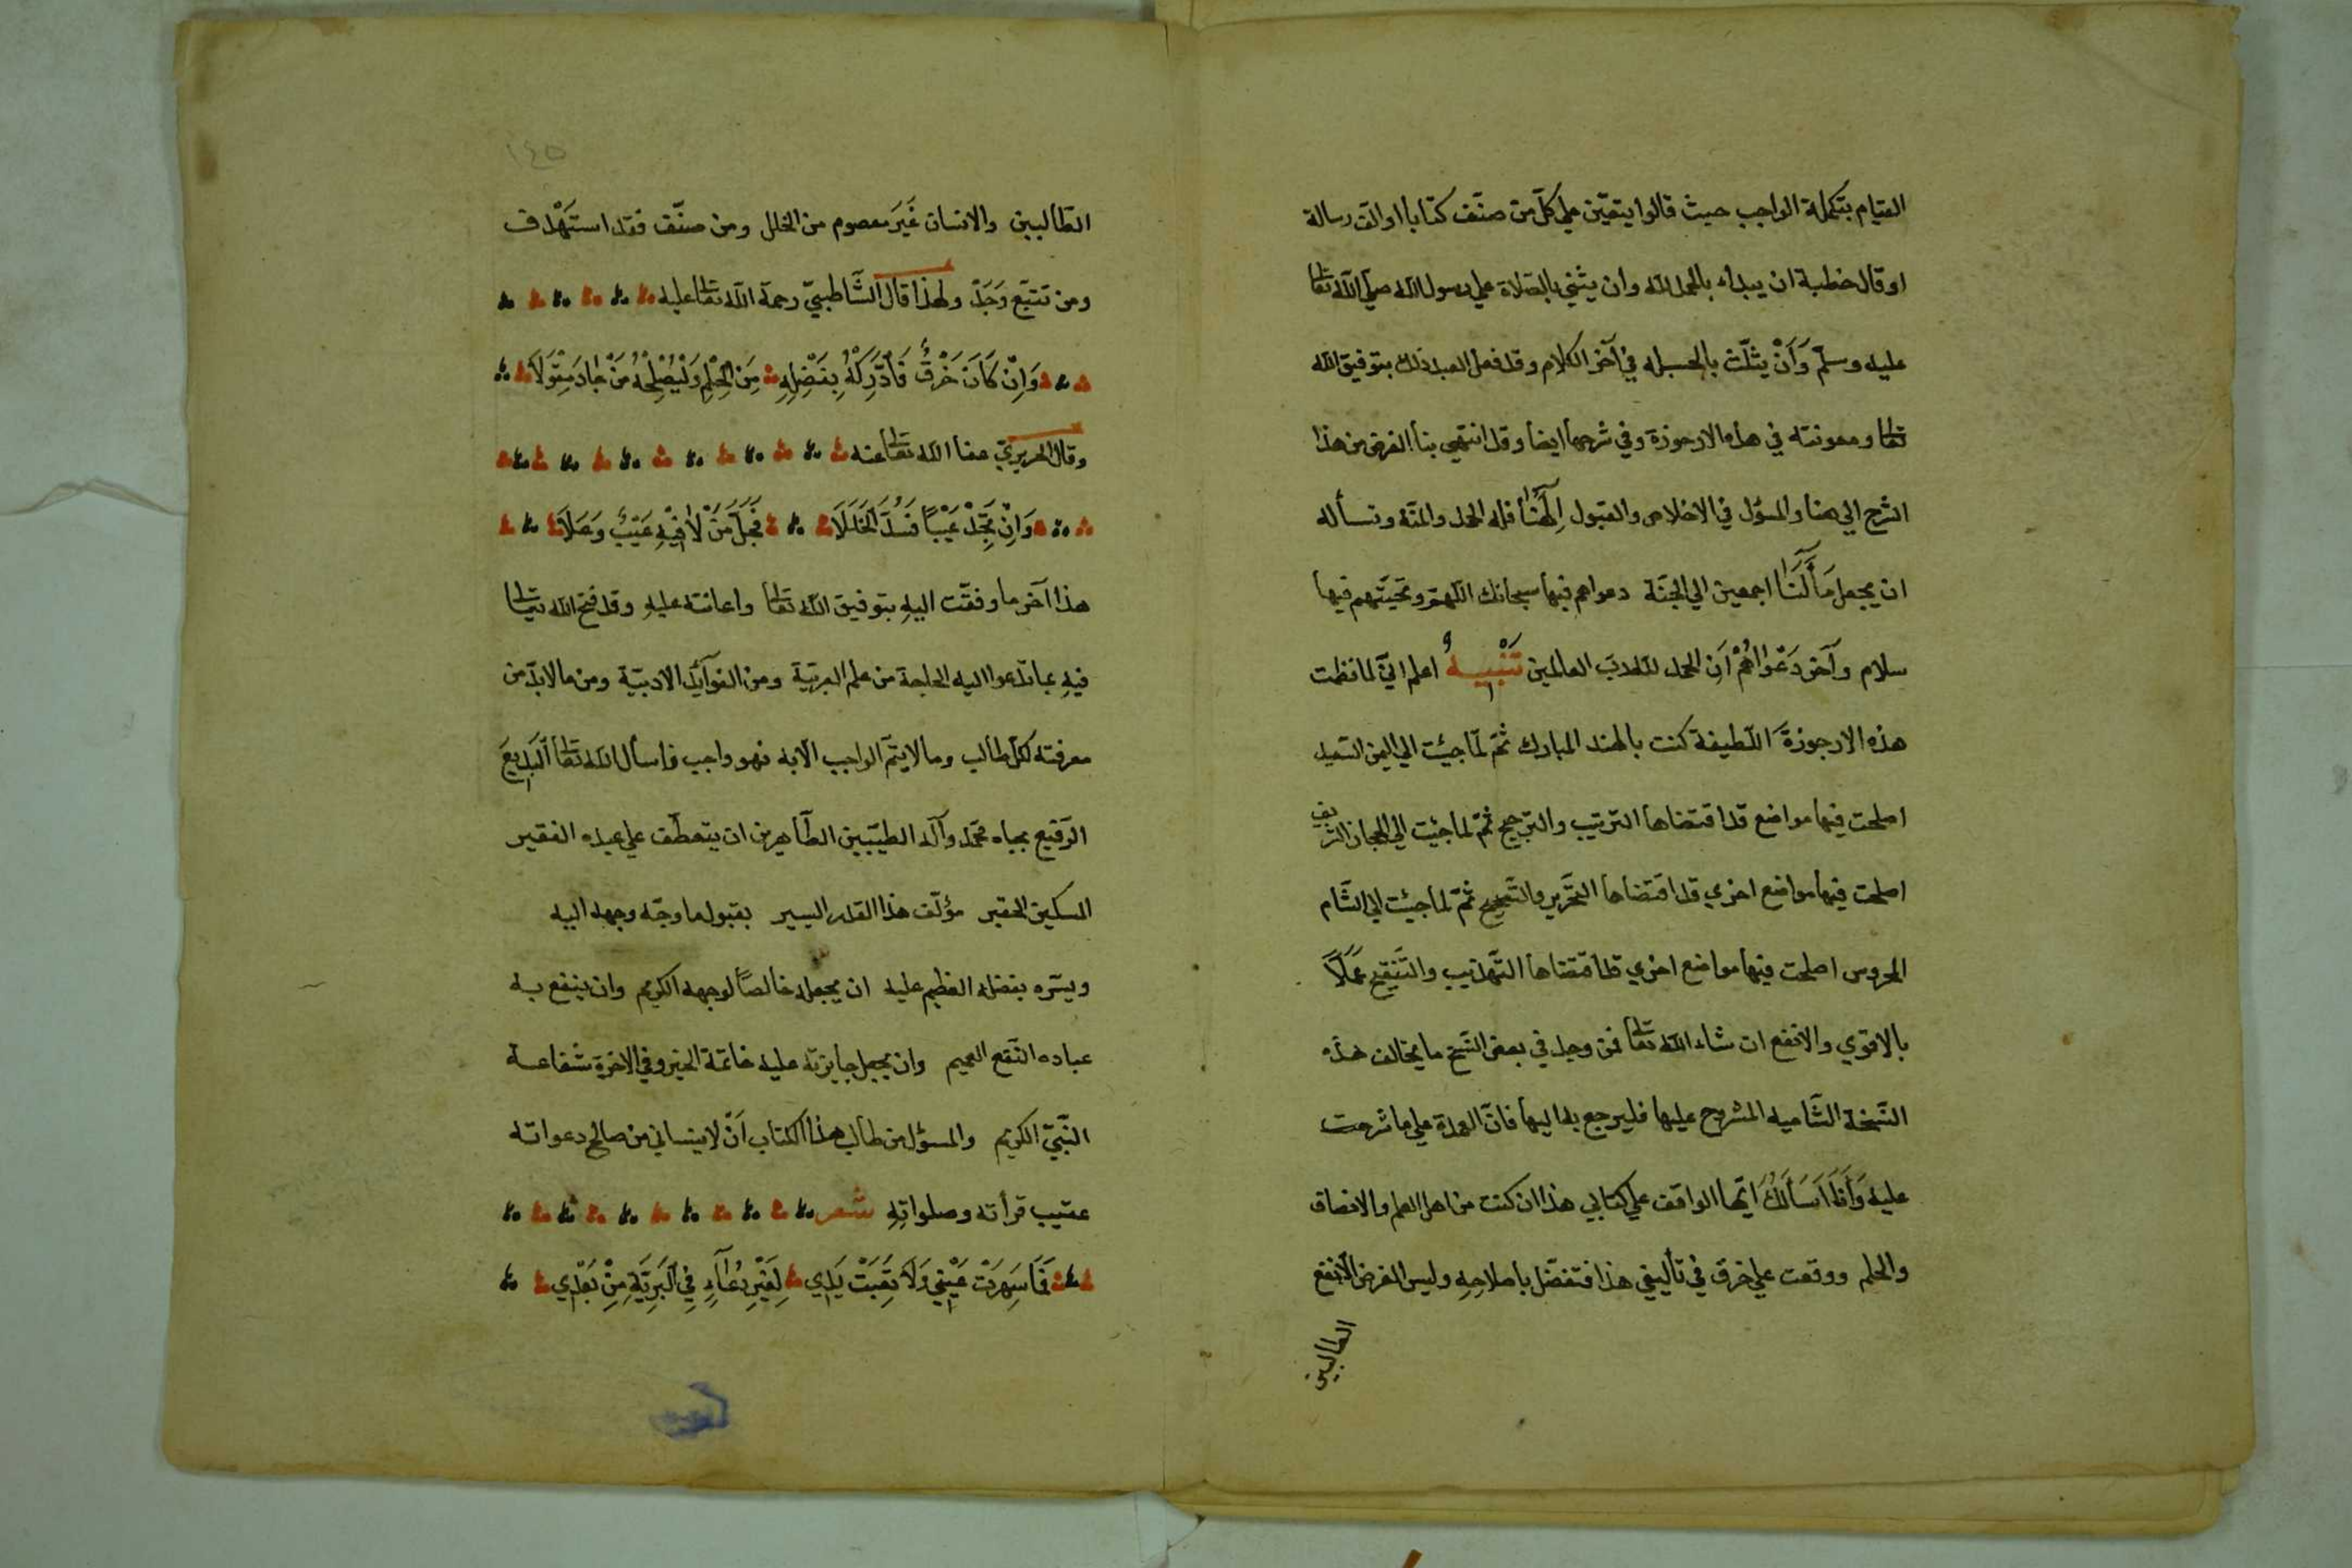 القيام بتكملة الواجب حيث قالوا يتعيّن علي كلّ من صنّف كتابا او الّف رسالة
او قال خطبة ان يبداء بالحمد لله وان يثنّي بالصّلاة علي رسول الله صلّي اللّه تعا
عليه وسلّم وَاَنْ يثلّث بالحسبله في آخر الكلام وقد فعل العبد ذلك بتوفيق الله
تعا ومعونته في هذه الارجوزة وفي شرحها ايضا وقد انتهي بنا الغرض من هذا
الشرح الي هنا والمسؤل في الاخلاص والقبول اِلٰهُنَا فله الحمد والمنّة ونسأله
ان يجعل مَآلَنَا اجمعين الي الجنّة دعواهم فيها سبحانك اللّهمّ وتحيّتهم فيها
سلام وآخر دَعْوٰاهُمْ اَنِ الحمد لله ربّ العالمين تَنْبِيهٌ اعلم انّي لما نظمت
هذه الارجوزةَ اللّطيفة كنت بالهند المبارك ثمّ لمّا جئت الي اليمن السّعيد
اصلحت فيها مواضع قد اقتضاها التّرتيب والتّرجيح ثمّ لما جئت الي الحجاز الشريف
اصلحت فيها مواضع اخري قد اقتضاها التّحرير والتّصحيح ثمّ لما جئت الي الشّام
المحروس اصلحت فيها مواضع اخري قد اقتضاها التّهذيب والتّنقيح عَمَلًا
بالاقوي والانفع ان شاء اللّه تعا فمن وجد في بعض النّسخ ما يخالف هذه
النّسخة الشّاميه المشروح عليها فليرجع بها اليها فانّ العمدة علي ما شرحت
عليه وَاَنَا اَسَأَلُكَ ايّها الواقف علي كتابي هذا ان كنت من اهل العلم والانصاف
والحلم ووقعت علي خرق في تأليفي هذا فتفضّل باصلاحِهِ وليس الغرض الّا نفع
الطالبين
١٤٥
الطّالبين والانسان غَيَر معصوم من الخلل ومن صنّف فقد استَهْدف
ومن تتبّع وَجَدَ ولهذا قال الشّاطبيّ رحمة اللّه تعا عليه
وَاِنْ كَانَ خَرْقٌ فَادَّرِكْهُ بِفَضْلِهِ مِنَ الحِلْمِ وَلْيُصْلِحْهُ مَنْ جَادَ مِقْوَلَا
وقال الحريريّ عفا اللّه تعا عنه
وَاِنْ تَجِدْ عَيْبًا فَسُدَّ الخَلَلَا فَجَلَّ مَنْ لَا فِيْهِ عَيْبٌ وَعَلَا
هذا آخر ما وفقّت اليهِ بتوفيق اللّه تعا واعانته عليهِ وقد فتح الله تعا
فيهِ بما تدعوا اليه الحاجة من علم العربيّة ومن الفوآئد الادبيّة ومن ما لا بدّ من
معرفته لكل طالب وما لا يتمّ الواجب الّا به فهو واجب فاسأل اللّه تعا اَلْبَدِيعَ
الرّفيع بجاه محمّد وآله الطيّبين الطّاهرين ان يتعطّف علي عبده الفقير
المسكين الحقير مؤلّف هذا القدر اليسير بقبول ما وجّه وجهه اليه
ويسّره بفضله العظيم عليه ان يجعله خالصًا لوجهه الكريم وان ينفع به
عباده النّفع العميم وان يجعل جايزته عليه خاتمة الخير وفي الاخرة شفاعة
النّبيّ الكريم والمسؤل من طالب هذا الكتاب اَنْ لا ينساني من صالح دعواته
عقيب قرأته وصلواتِهِ شعر
فَمَا سَهِرَتْ عَيْنِي وَلَا تَعِبَتْ يَدِي لِغَيْرِ دُعَآءٍ فِي البَرِيَّةِ مِنْ بَعْدِي